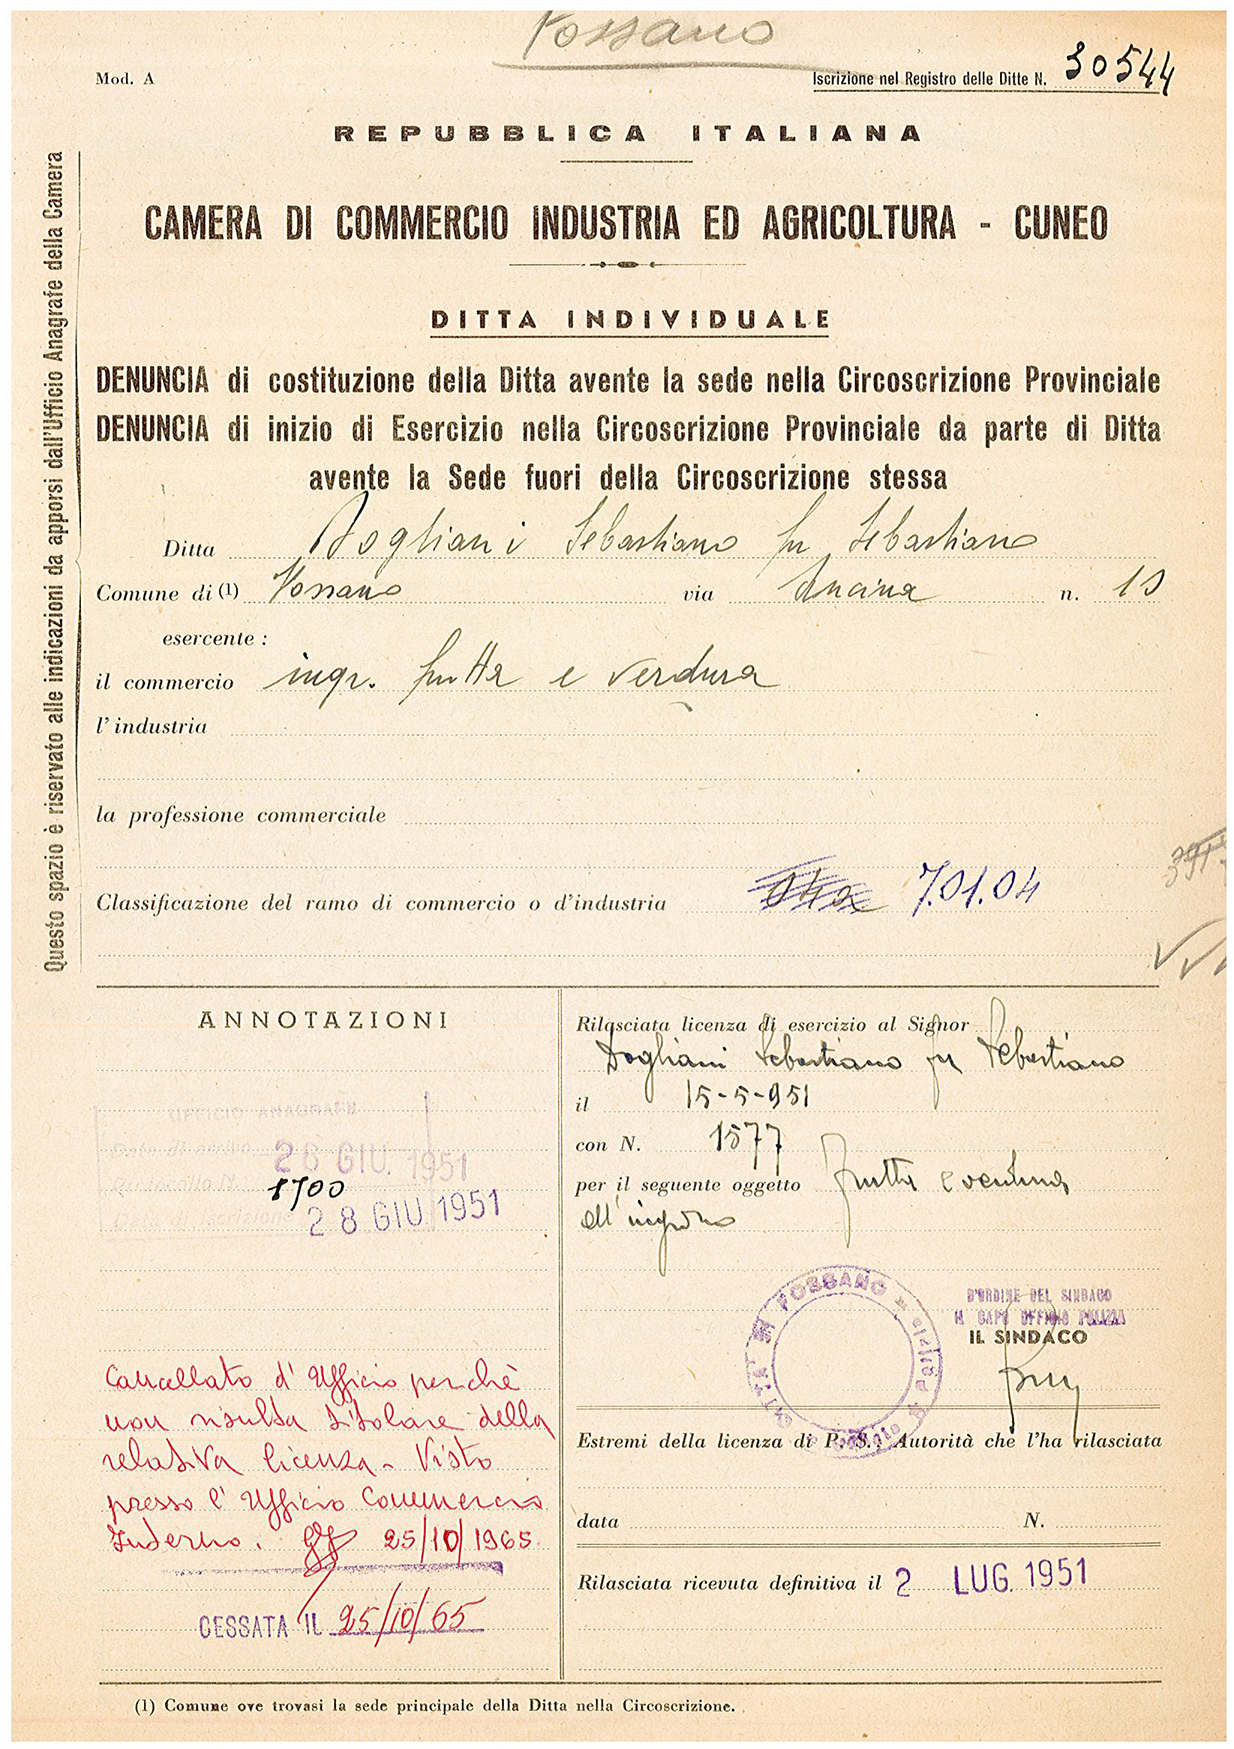 Fossano
Mod. A
Iscrizione nel Registro delle Ditte N. 30544
REPUBBLICA ITALIANA
CAMERA DI COMMERCIO INDUSTRIA ED AGRICOLTURA - CUNEO
DITTA INDIVIDUALE
DENUNCIA di costituzione della Ditta avente la sede nella Circoscrizione Provinciale
DENUNCIA di inizio di Esercizio nella Circoscrizione Provinciale da parte di Ditta
avente la Sede fuori della Circoscrizione stessa
Questo spazio è riservato alle indicazioni da apporsi dall'Ufficio Anagrafe della Camera
Ditta Dogliani Sebastiano fu Sebastiano
Comune di (1) Fossano via Ancina n. 10
esercente :
il commercio ingr. frutta e verdura
l'industria
la professione commerciale
Classificazione del ramo di commercio o d'industria 7.01.04
ANNOTAZIONI
UFFICIO ANAGRAFE
Data di arrivo 26 GIU. 1951
Protocollo N. 1700
28 GIU. 1951
Cancellato d'Ufficio perchè
non risulta titolare della
relativa licenza - Visto
presso l'Ufficio Commercio
Interno. 25/10/1965
CESSATA IL 25/10/65
Rilasciata licenza di esercizio al Signor
Dogliani Sebastiano fu Sebastiano
il 15-5-951
con N. 1577
per il seguente oggetto frutta e verdura
all'ingrosso
CITTÀ DI FOSSANO
D'ORDINE DEL SINDACO
IL CAPO UFFICIO POLIZIA
IL SINDACO
Estremi della licenza di P. S. : Autorità che l'ha rilasciata
data N.
Rilasciata ricevuta definitiva il 2 LUG. 1951
(1) Comune ove trovasi la sede principale della Ditta nella Circoscrizione.